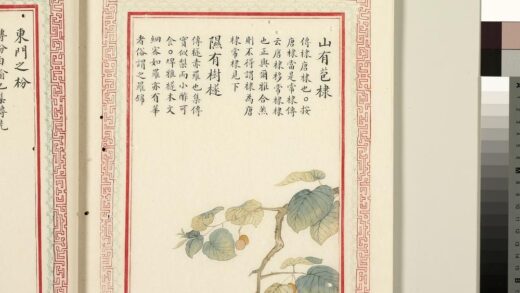 山有苞棣
傳棣唐棣也○按
唐棣當是常棣傳
云唐棣栘常棣棣
也正與爾雅合然
則不得謂棣為唐
棣常棣見下
隰有樹檖
傳檖赤羅也集傳
實似梨而小酢可
食○埤雅檖木文
細密如羅亦有華
者俗謂之羅錦
東門之枌
傳枌白榆也集傳先